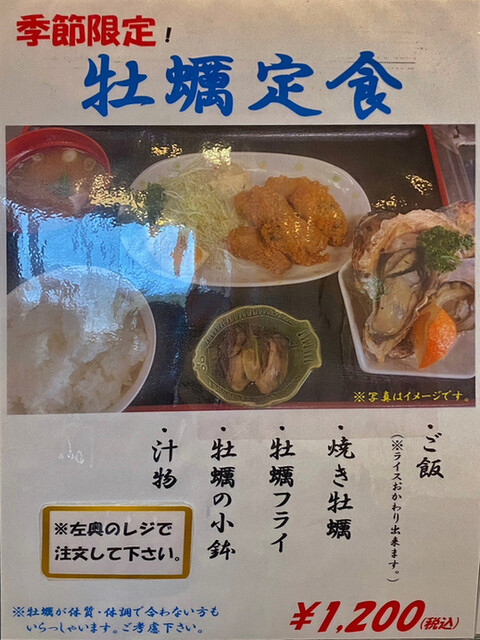 季節限定!
牡蠣定食
※写真はイメージです。
・ご飯
(※ライスおかわり出来ます。)
・焼き牡蠣
・牡蠣フライ
・牡蠣の小鉢
・汁物
※左奥のレジで
注文して下さい。
※牡蠣が体質・体調で合わない方も
いらっしゃいます。ご考慮下さい。
¥1,200(税込)